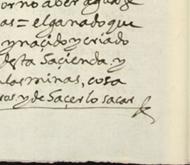 orno aber aguas de
as = el ganado que
y nacido y criado
desta haçienda, y
las minas, cosa
ros y de haçerlo sacar